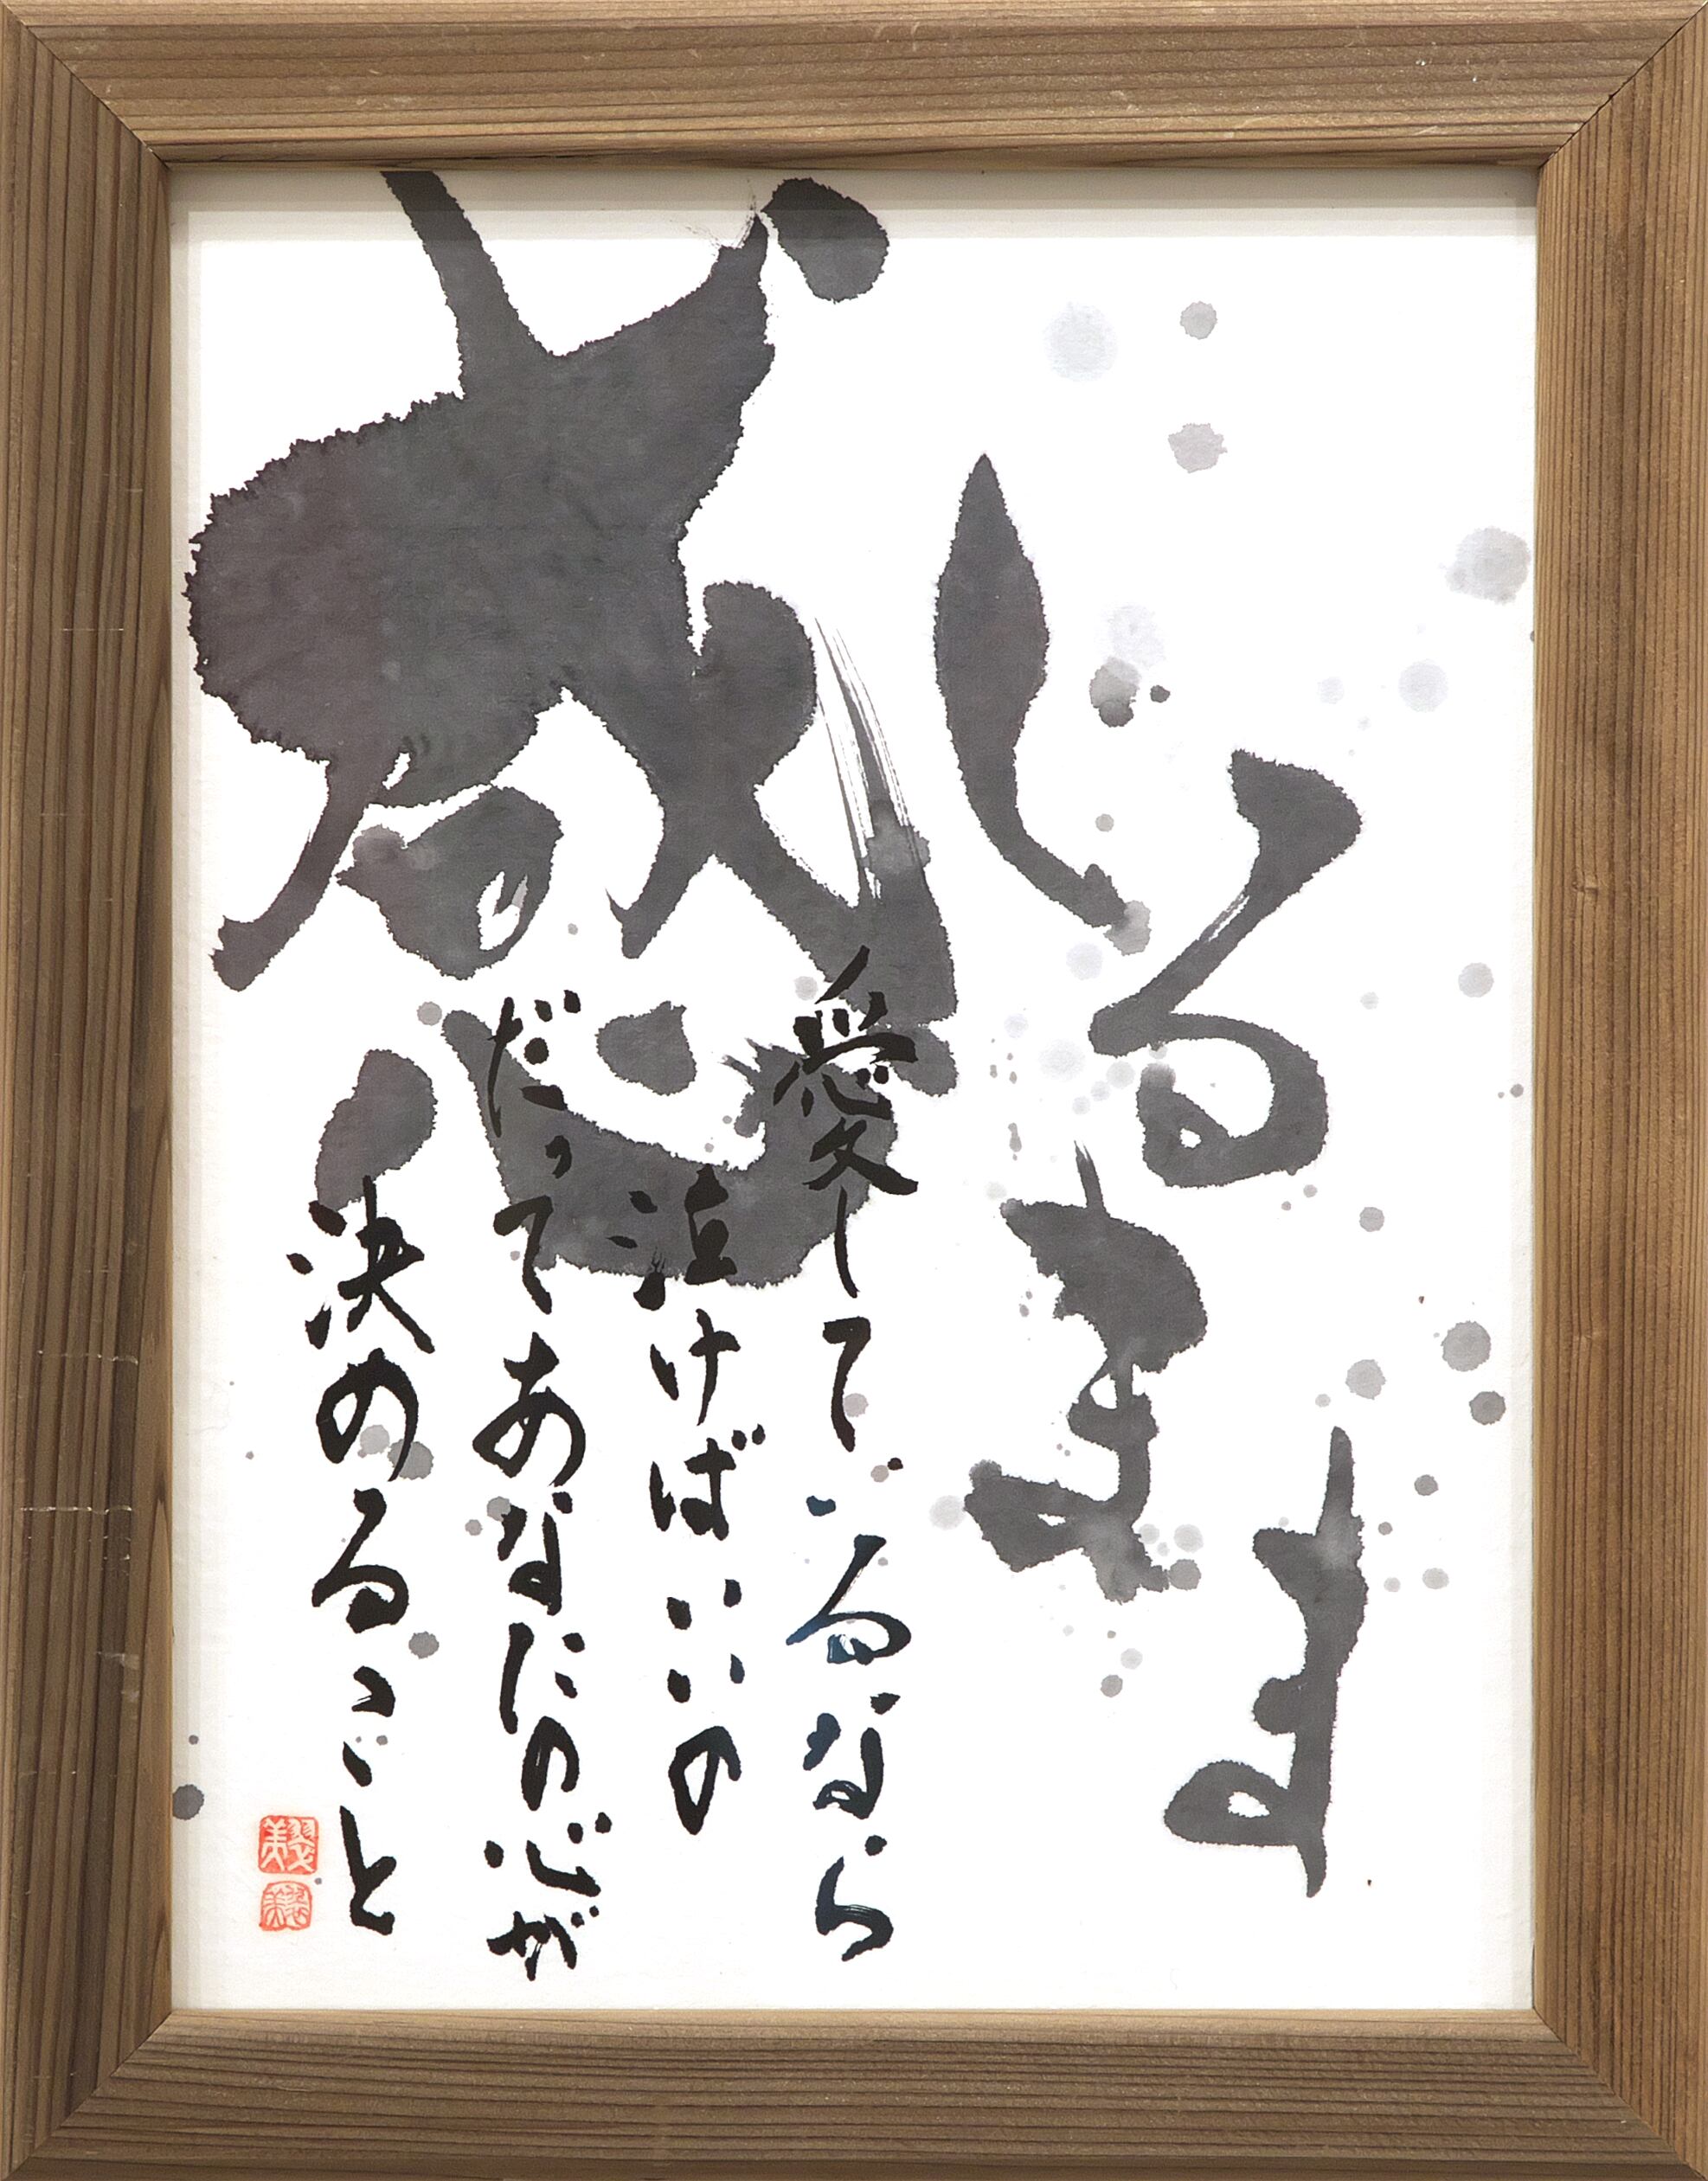 感じるまま
愛しているなら
泣けばいいの
だってあなたの心が
決めること